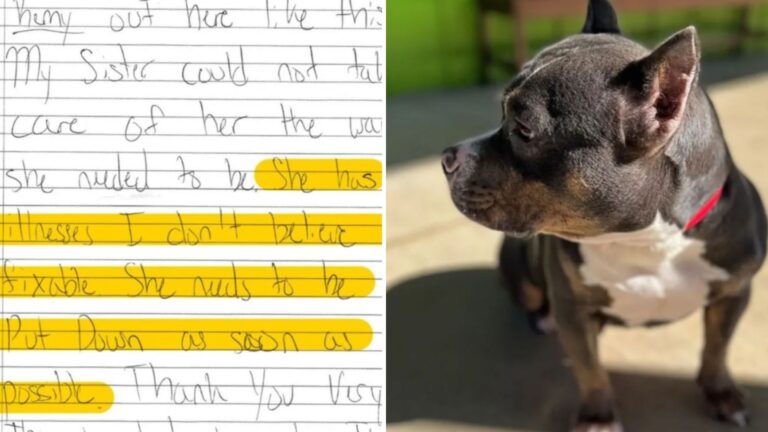 out here like this
My Sister could not
care of her the
she needed to be. She has
illnesses I don't believe
fixable. She needs to be
Put Down as soon as
possible. Thank You Very